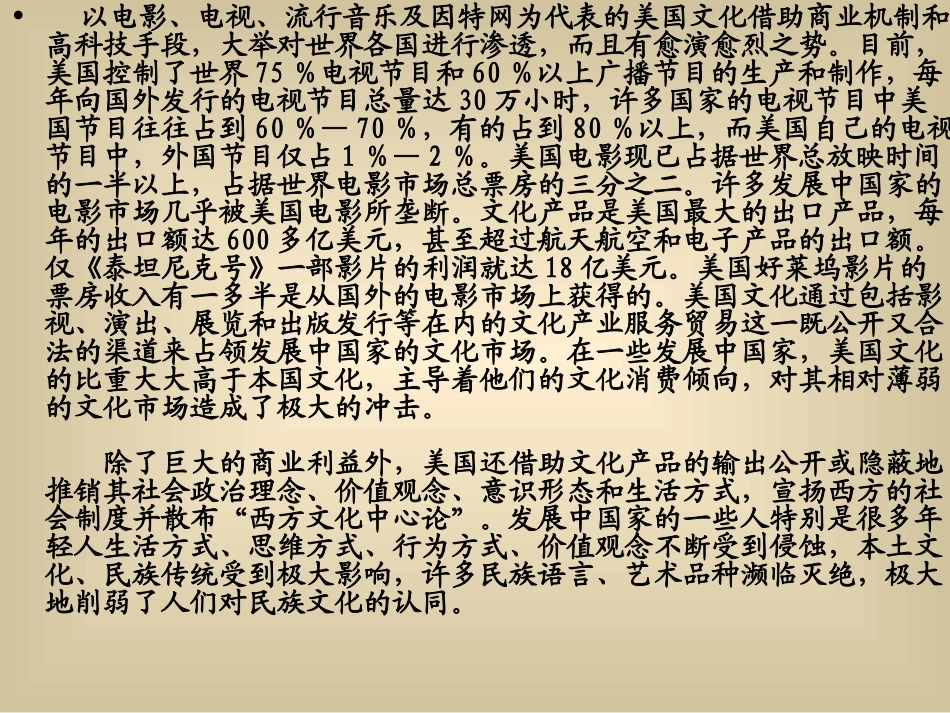 • 以电影、电视、流行音乐及因特网为代表的美国文化借助商业机制和
高科技手段，大举对世界各国进行渗透，而且有愈演愈烈之势。目前，
美国控制了世界 75 %电视节目和 60 %以上广播节目的生产和制作，每
年向国外发行的电视节目总量达 30 万小时，许多国家的电视节目中美
国节目往往占到 60 %— 70 %，有的占到 80 %以上，而美国自己的电视
节目中，外国节目仅占 1 %— 2 %。美国电影现已占据世界总放映时间
的一半以上，占据世界电影市场总票房的三分之二。许多发展中国家的
电影市场几乎被美国电影所垄断。文化产品是美国最大的出口产品，每
年的出口额达 600 多亿美元，甚至超过航天航空和电子产品的出口额。
仅《泰坦尼克号》一部影片的利润就达 18 亿美元。美国好莱坞影片的
票房收入有一多半是从国外的电影市场上获得的。美国文化通过包括影
视、演出、展览和出版发行等在内的文化产业服务贸易这一既公开又合
法的渠道来占领发展中国家的文化市场。在一些发展中国家，美国文化
的比重大大高于本国文化，主导着他们的文化消费倾向，对其相对薄弱
的文化市场造成了极大的冲击。
除了巨大的商业利益外，美国还借助文化产品的输出公开或隐蔽地
推销其社会政治理念、价值观念、意识形态和生活方式，宣扬西方的社
会制度并散布“西方文化中心论”。发展中国家的一些人特别是很多年
轻人生活方式、思维方式、行为方式、价值观念不断受到侵蚀，本土文
化、民族传统受到极大影响，许多民族语言、艺术品种濒临灭绝，极大
地削弱了人们对民族文化的认同。